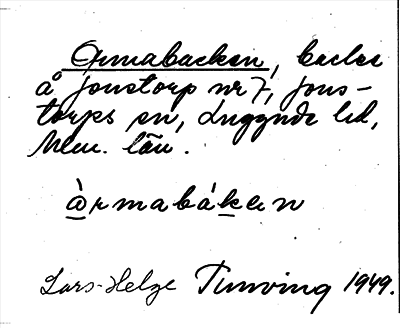 Ormabacken, backe
å Jonstorp nr 7, Jons-
torps sn, Luggude hd,
Mlm. län.
àrmabákan
Lars-Helge Tunving 1949.